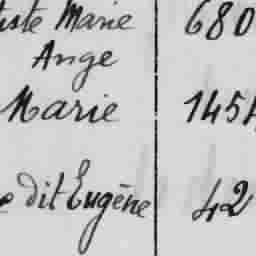 iste Marie 680
Ange
Marie 1454
e dit Eugène 42